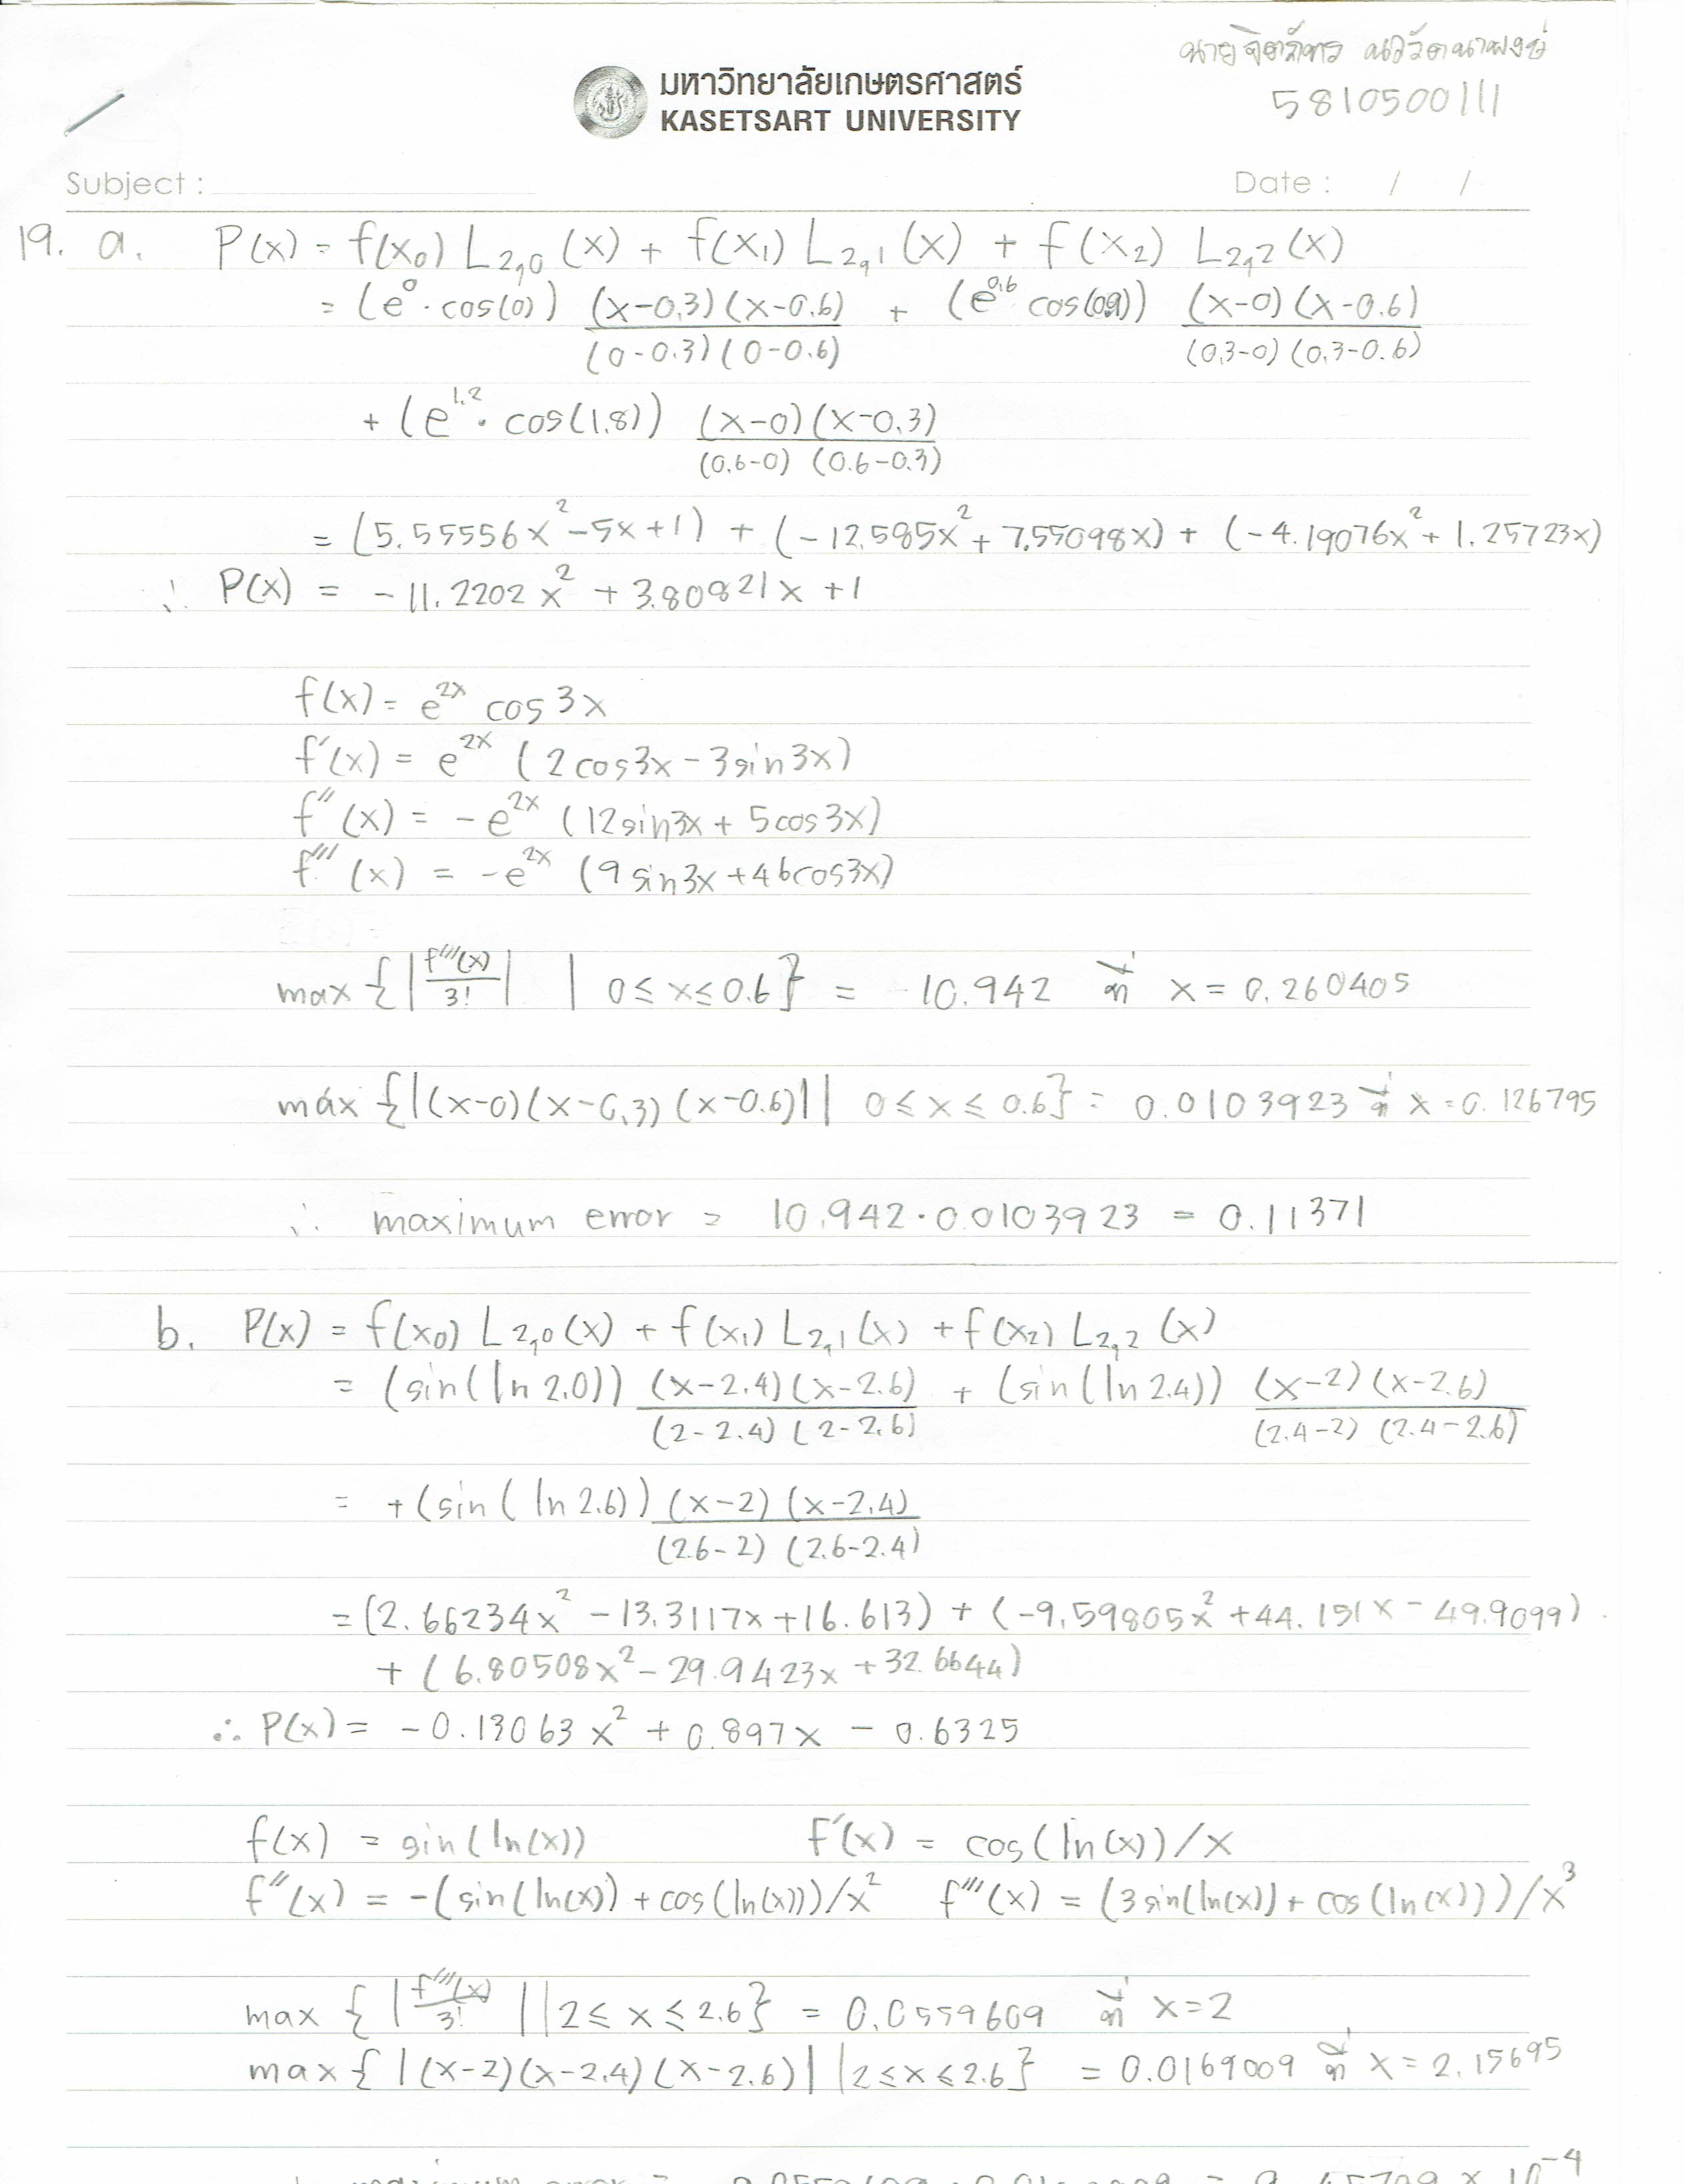 นายจิตภัทร นววัฒนาพงษ์
5810500111
มหาวิทยาลัยเกษตรศาสตร์
KASETSART UNIVERSITY
Subject :
Date : / /
19. a. P(x) = f(x₀) L₂,₀ (x) + f(x₁) L₂,₁ (x) + f(x₂) L₂,₂ (x)
= (e⁰ · cos(0)) (x-0.3)(x-0.6) / (0-0.3)(0-0.6) + (e^0.6 cos(0.9)) (x-0)(x-0.6) / (0.3-0)(0.3-0.6)
+ (e^1.2 · cos(1.8)) (x-0)(x-0.3) / (0.6-0)(0.6-0.3)
= (5.55556x² -5x+1) + (-12.585x² + 7.55098x) + (-4.19076x² + 1.25723x)
∴ P(x) = -11.2202x² + 3.80821x +1
f(x) = e^2x cos 3x
f′(x) = e^2x (2cos3x - 3sin3x)
f″(x) = -e^2x (12sin3x + 5cos3x)
f‴(x) = -e^2x (9sin3x + 46cos3x)
max {|f‴(x)/3!| | 0 ≤ x ≤ 0.6} = -10.942 ที่ x = 0.260405
max {|(x-0)(x-0.3)(x-0.6)| | 0 ≤ x ≤ 0.6} = 0.0103923 ที่ x = 0.126795
∴ maximum error = 10.942 · 0.0103923 = 0.11371
b. P(x) = f(x₀) L₂,₀ (x) + f(x₁) L₂,₁ (x) + f(x₂) L₂,₂ (x)
= (sin(ln 2.0)) (x-2.4)(x-2.6) / (2-2.4)(2-2.6) + (sin(ln 2.4)) (x-2)(x-2.6) / (2.4-2)(2.4-2.6)
= + (sin(ln 2.6)) (x-2)(x-2.4) / (2.6-2)(2.6-2.4)
= (2.66234x² - 13.3117x + 16.613) + (-9.59805x² + 44.151x - 49.9099)
+ (6.80508x² - 29.9423x + 32.6644)
∴ P(x) = -0.13063x² + 0.897x - 0.6325
f(x) = sin(ln(x)) f′(x) = cos(ln(x))/x
f″(x) = -(sin(ln(x)) + cos(ln(x)))/x² f‴(x) = (3sin(ln(x)) + cos(ln(x)))/x³
max {|f‴(x)/3!| | 2 ≤ x ≤ 2.6} = 0.0559609 ที่ x = 2
max {|(x-2)(x-2.4)(x-2.6)| | 2 ≤ x ≤ 2.6} = 0.0169009 ที่ x = 2.15695